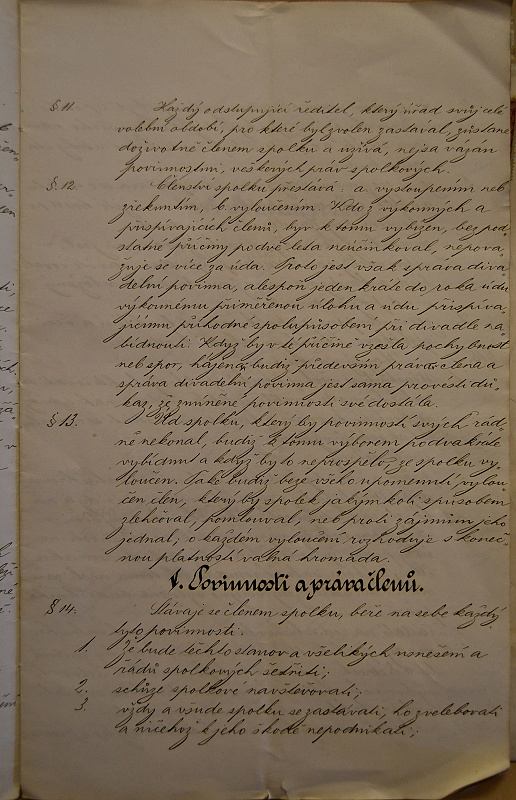 § 11. Každý odstupující ředitel, který úřad svůj celé
volební období, pro které byl zvolen zastával, zůstane
doživotně členem spolku a užívá, nejsa vázán
povinnostmi, veškerých práv spolkových.
§. 12. Členství spolku přestává: a. vystoupením neb
zřeknutím, b. vyloučením. Kdo z výkonných a
přispívajících členů, byv k tomu vybízen, bez pod
statné příčiny podvě léta neúčinkoval, nepova
žuje se více za úda. Proto jest však správa diva
delní povinna, alespoň jeden kráte do roka údu
výkonnému přiměřenou úlohu a údu přispíva
jícímu příhodné spolupůsobení při divadle na
bídnouti. Kdyby v té příčině vzešla pochybnost
neb spor, hájena budiž především práva člena a
správa divadelní povinna jest sama provésti dů
kaz, že zmíněné povinnosti své dostála.
§ 13. Úd spolku, který by povinností svých řád
ně nekonal, budiž k tomu výborem podvakráte
vybídnut a když by to neprospělo, ze spolku vy
loučen. Také budiž beze všeho upomenutí vylou
čen člen, který by spolek jakýmkoli způsobem
zlehčoval, pomlouval, neb proti zájmům jeho
jednal; o každém vyloučení rozhoduje s koneč
nou platností valná hromada.
V. Povinnosti a práva členů.
§ 14. Stávaje se členem spolku, béře na sebe každý
tyto povinnosti:
1. Že bude těchto stanov a všelikých usnešení a
řádů spolkových šetřiti;
2. schůze spolkové navštěvovati;
3. vždy a všude spolku se zastávati, ho zvelebovati
a ničehož k jeho škodě nepodnikati;